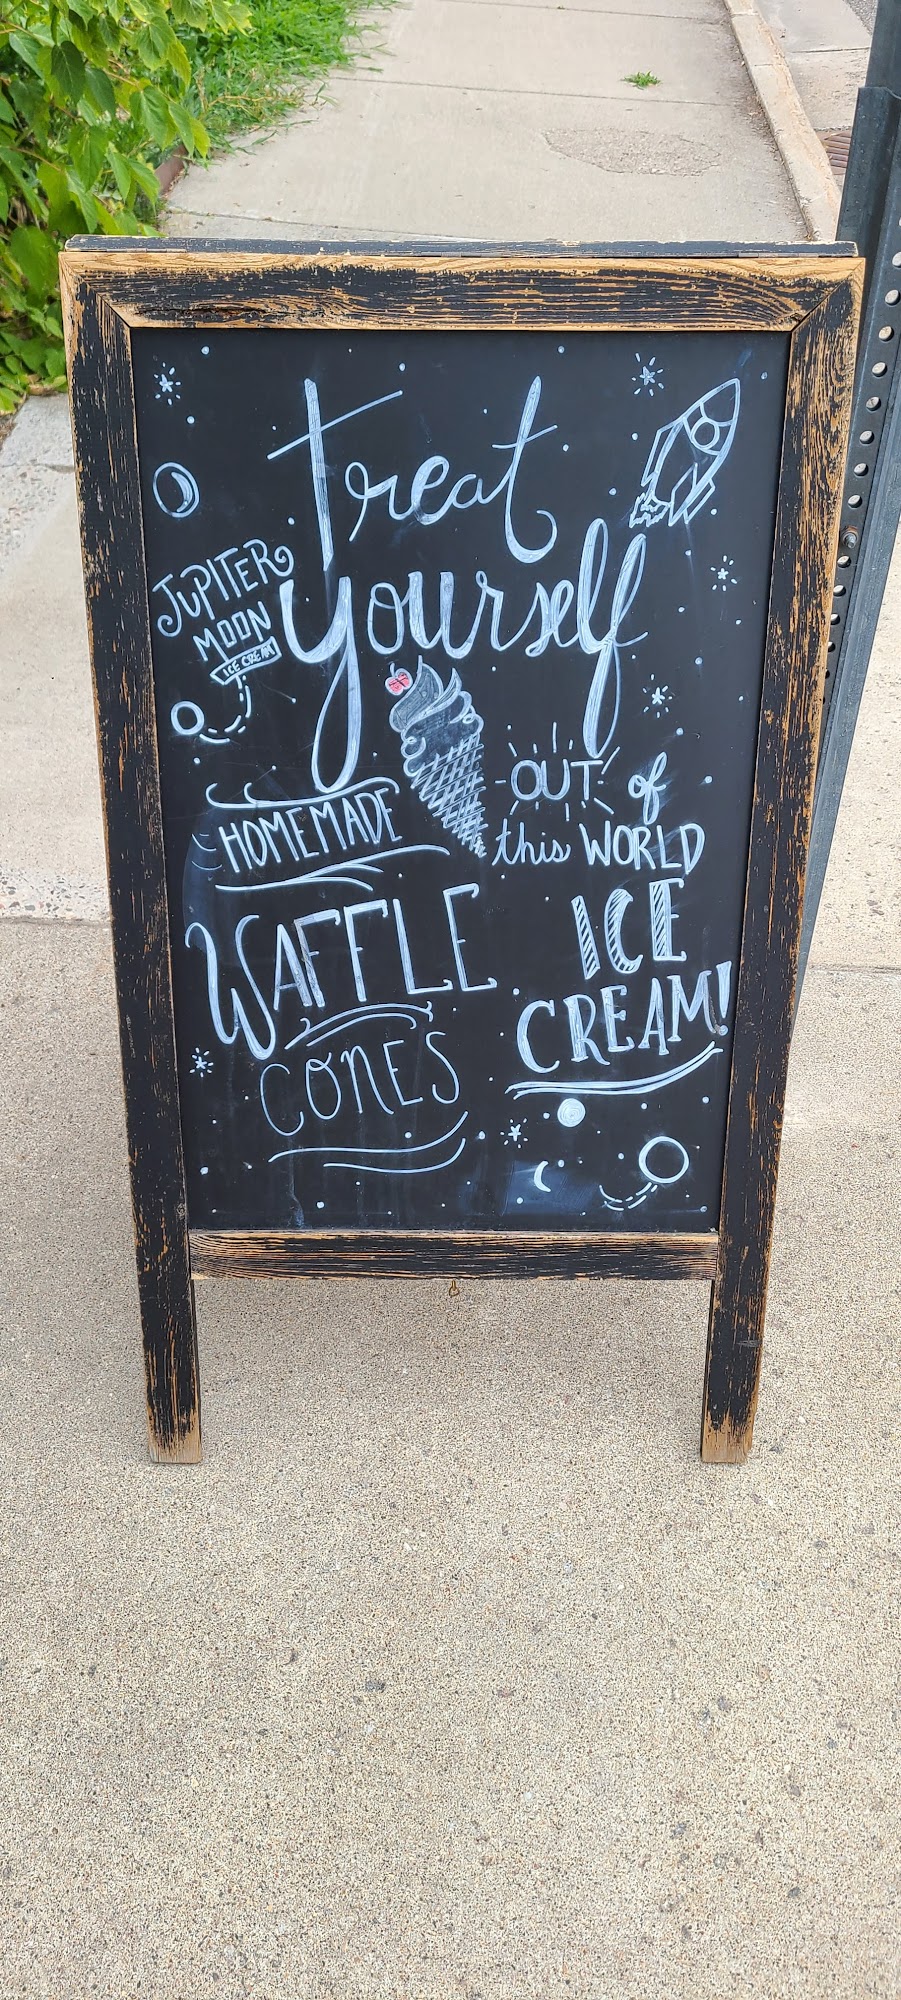 Treat
Yourself
JUPITER
MOON
ICE CREAM
HOMEMADE
WAFFLE
CONES
OUT of
this WORLD
ICE
CREAM!